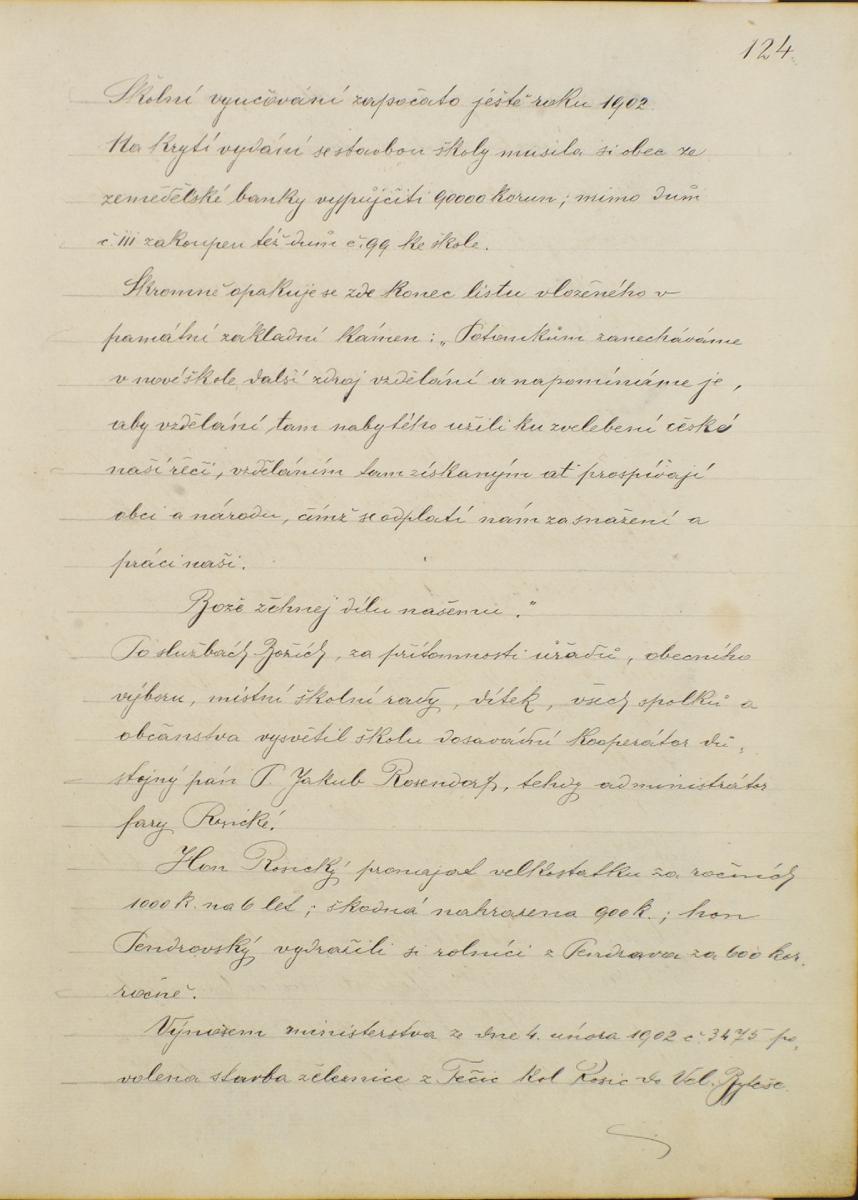 124.
Školní vyučování započato ještě roku 1902.
Na krytí vydání se stavbou školy musila si obec ze
zemědělské banky vypůjčiti 90000 korun; mimo dům
č. 111 zakoupen též dům č. 99 ke škole.
Skromně opakuje se zde konec listu vloženého v
památní základní kámen: „Potomkům zanecháváme
v nové škole další zdroj vzdělání a napomínáme je,
aby vzdělání tam nabytého užili ku zvelebení české
naší řeči, vzděláním tam získaným ať prospívají
obci a národu, čímž se odplatí nám za snažení a
práci naši.
Bože žehnej dílu našemu."
Po službách Božích, za přítomnosti úřadů, obecního
výboru, místní školní rady, dítek, všech spolků a
občanstva vysvětil školu dosavádní kooperátor dů-
stojný pán P. Jakub Rosendorf, tehdy administrátor
fary Rosické.
Hon Rosický pronajat velkostatku za ročních
1000 k. na 6 let; škodná nahrazena 900 k.; hon
Pendrovský vydražili si rolníci z Pendrova za 600 kor.
ročně.
Výnosem ministerstva ze dne 4. února 1902 č. 3475 po-
volena stavba železnice z Tečic kol Rosic do Vel. Byteše.